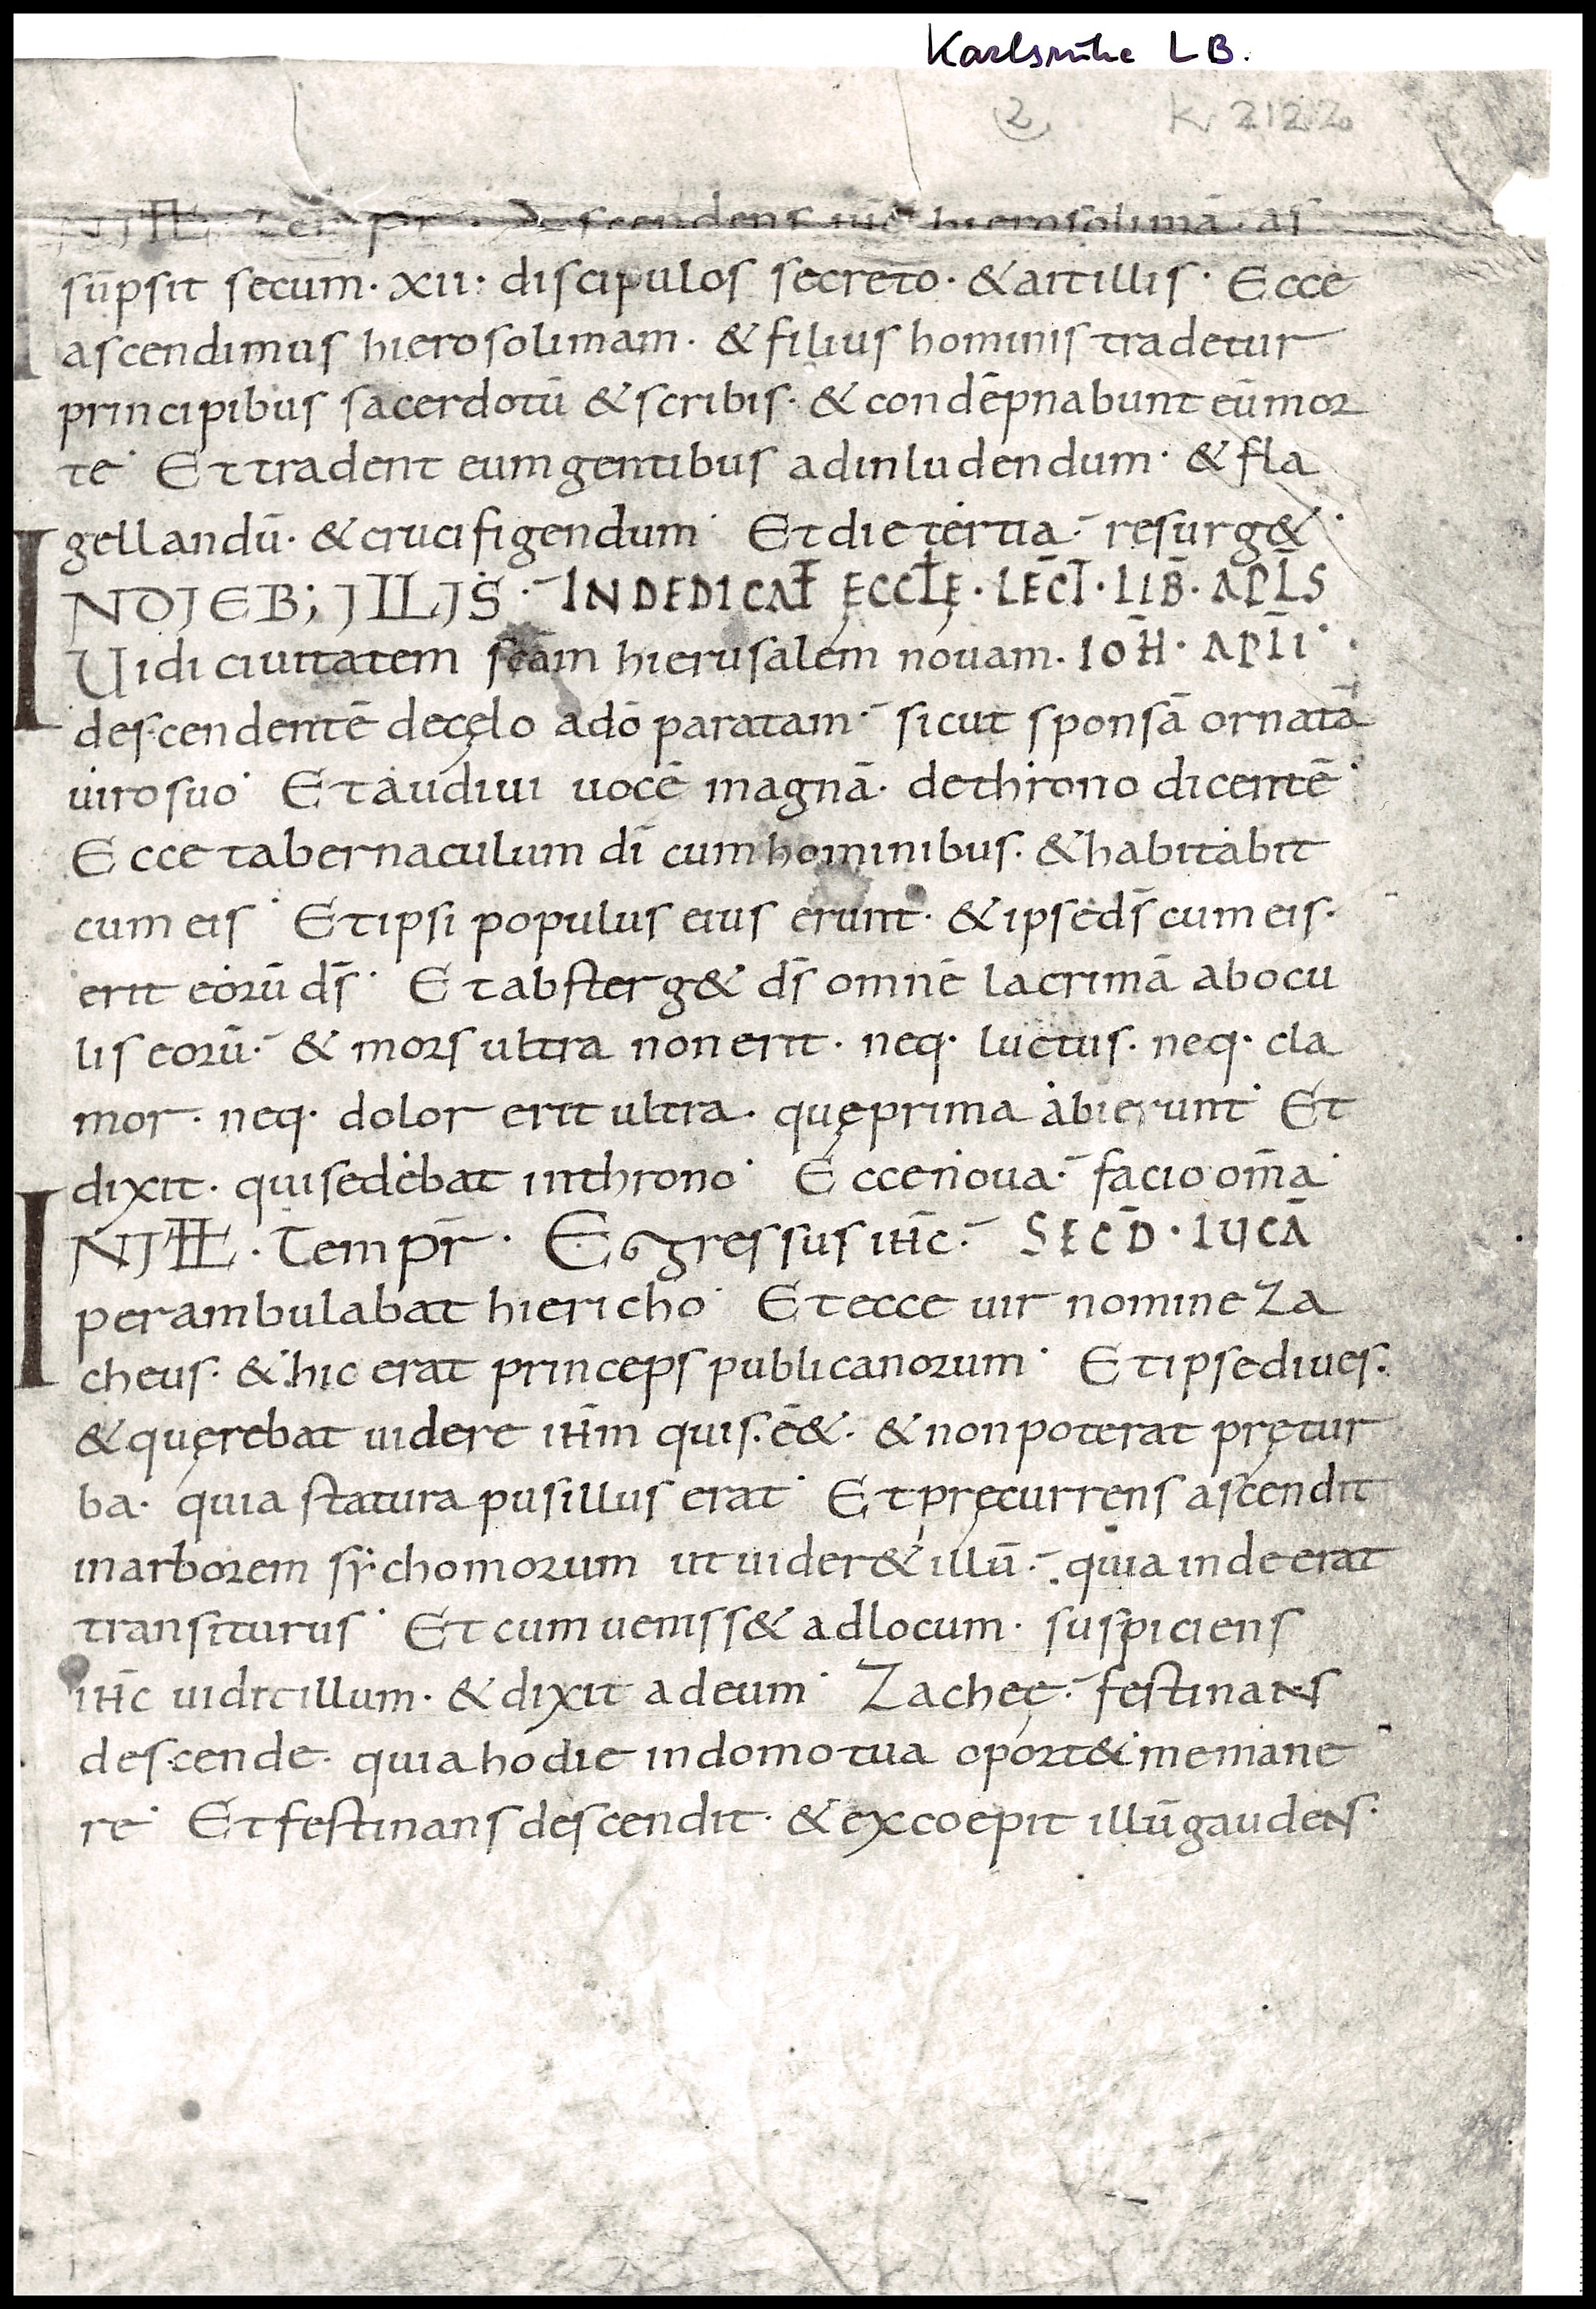 Karlsruhe LB.
2 K, 2122
Temp̄r · Ascendens ih̄c hierosolimā · as
sūpsit secum · xii · discipulos secreto · & ait illis · Ecce
ascendimus hierosolimam · & filius hominis tradetur
principibus sacerdotū & scribis · & condēpnabunt eū mor
te · Et tradent eum gentibus ad inludendum · & fla
gellandū · & crucifigendum · Et die tertia · resurg& ·
IN DIEB; ILLIS · IN DEDICAT̄ ĘCCLĘ̄ · LEC̄T · LIB̄ · APL̄S
Uidi ciuitatem sc̄am hierusalem nouam · IOH̄ · APL̄I ·
descendentē de cęlo a dō paratam · sicut sponsā ornatā
uiro suo · Et audiui uocē magnā · de throno dicentē ·
Ecce tabernaculum dī cum hominibus · & habitabit
cum eis · Et ipsi populus eius erunt · & ipse ds̄ cum eis ·
erit eorū ds̄ · Et absterg& ds̄ omnē lacrimā ab ocu
lis eorū · & mors ultra non erit · neq · luctus · neq · cla
mor · neq · dolor erit ultra · quę prima abierunt · Et
dixit · qui sedebat in throno · Ecce noua · facio om̄a ·
IN ILL̄ · Temp̄r · Egressus ih̄c · SEC̄D · LUCĀ
perambulabat hiericho · Et ecce uir nomine Za
cheus · & hic erat princeps publicanorum · Et ipse diues ·
& quęrebat uidere ih̄m quis · ē& · & non poterat prę tur
ba · quia statura pusillus erat · Et pręcurrens ascendit
in arborem sychomorum ut uider& illū · quia inde erat
transiturus · Et cum ueniss& ad locum · suspiciens
ih̄c uidit illum · & dixit ad eum · Zacheę · festinans
descende · quia hodie in domo tua oport& me mane
re · Et festinans descendit · & excoepit illū gaudens ·